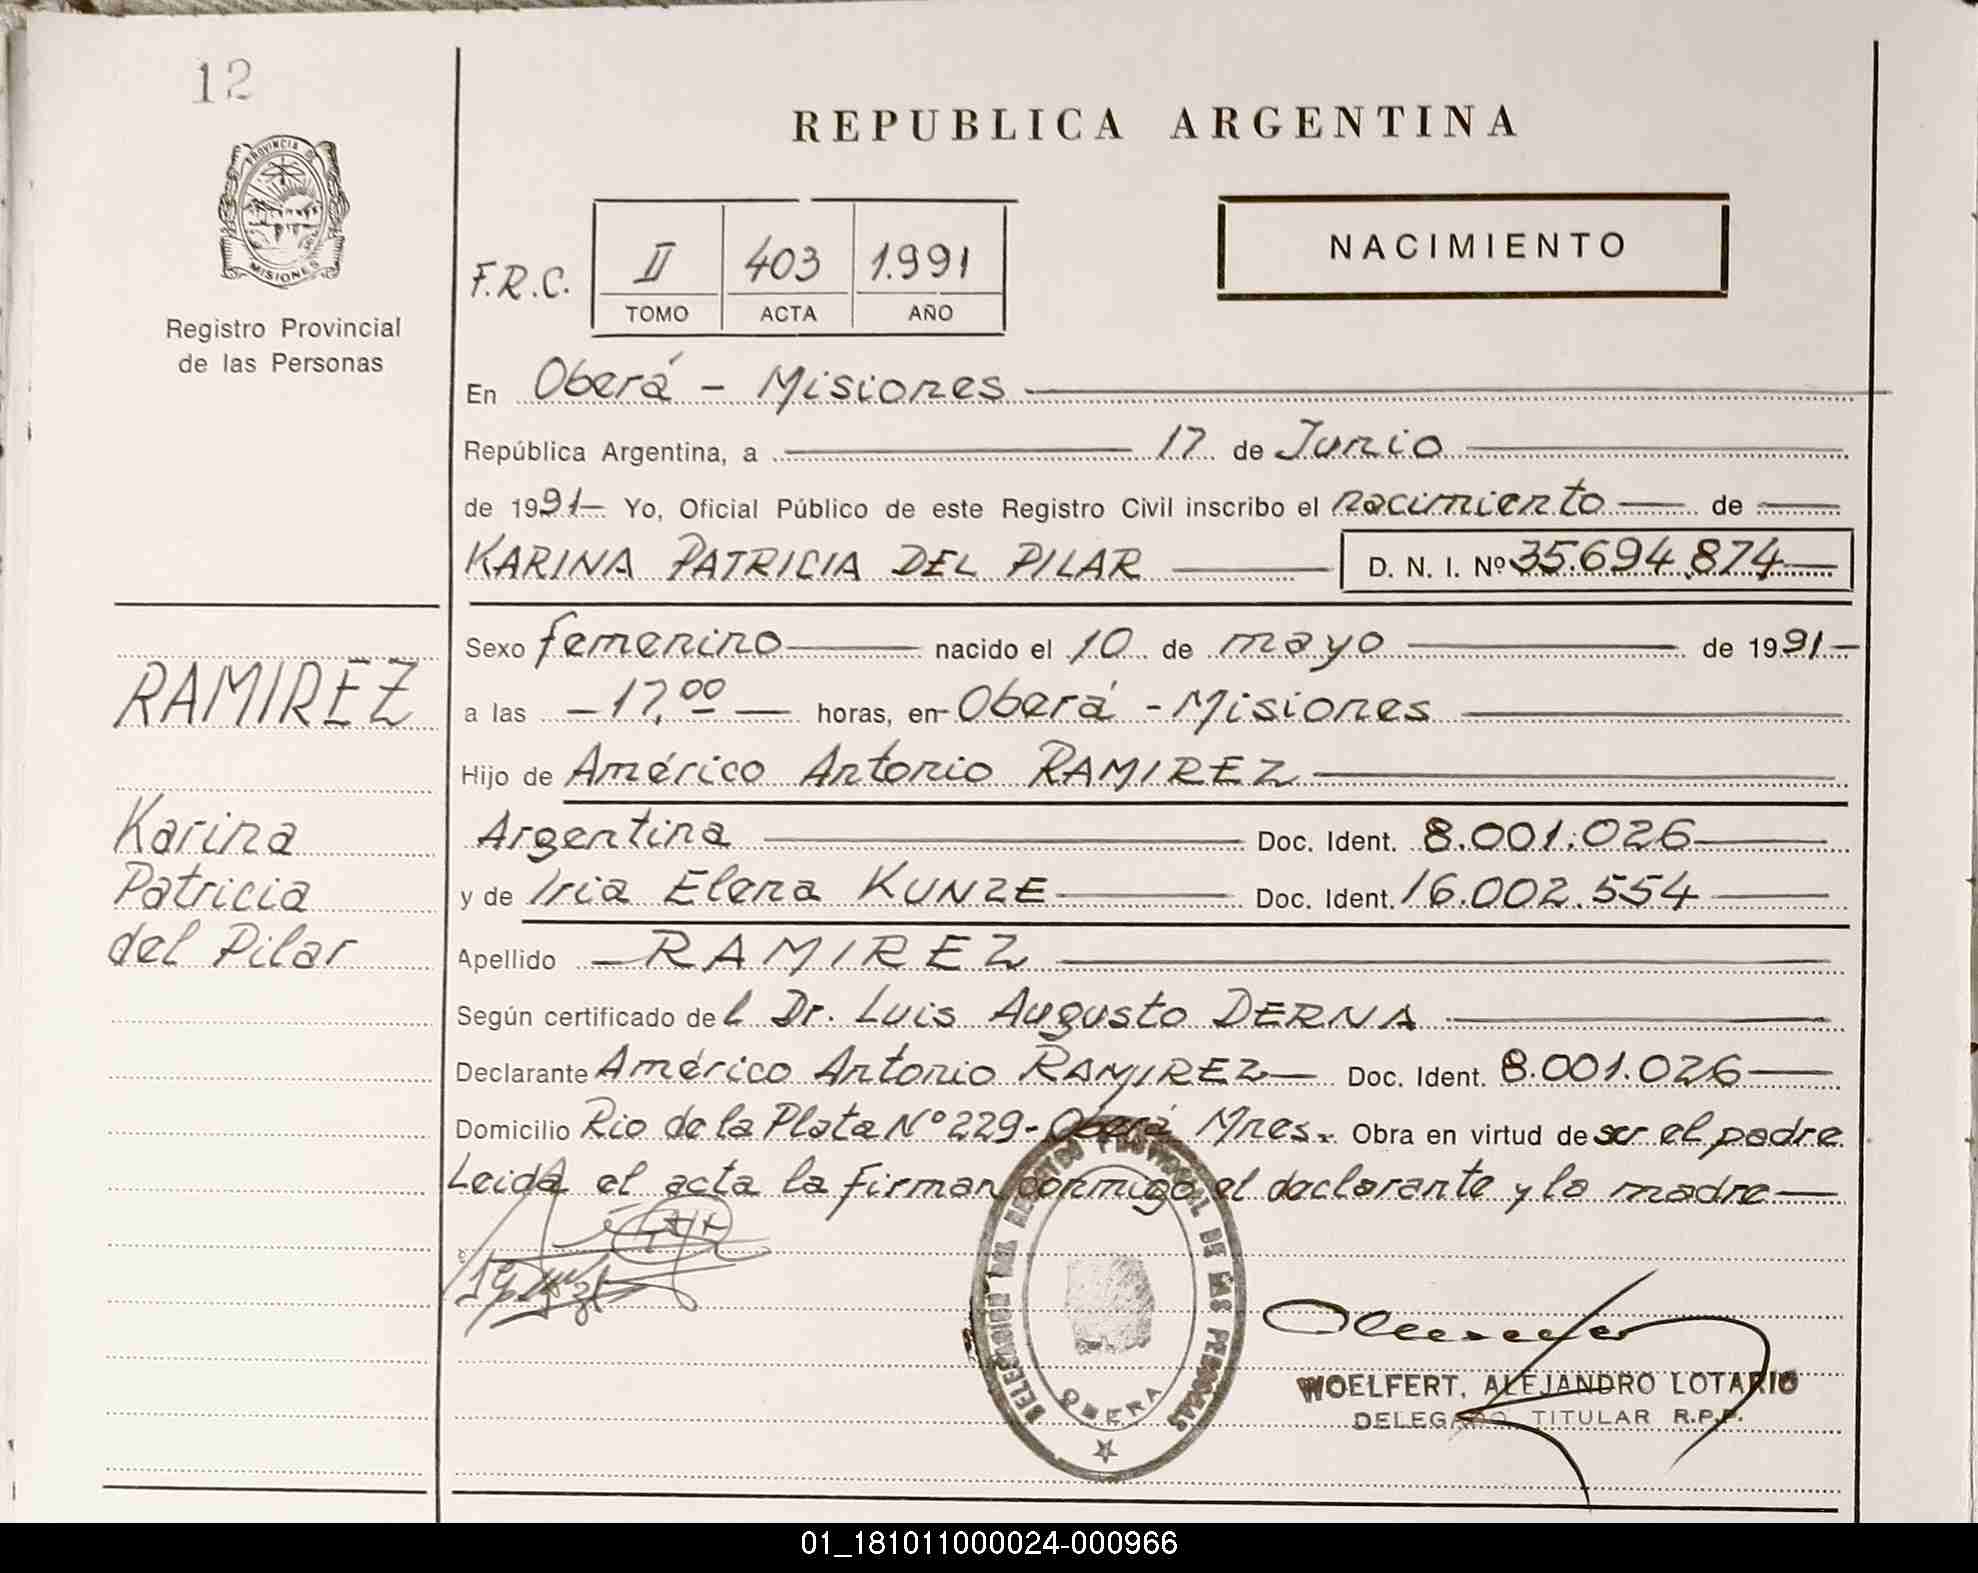 12
PROVINCIA DE
MISIONES
Registro Provincial
de las Personas
REPUBLICA ARGENTINA
NACIMIENTO
F.R.C. II 403 1.991
TOMO ACTA AÑO
En Oberá - Misiones
República Argentina, a 17 de Junio
de 1991- Yo, Oficial Público de este Registro Civil inscribo el nacimiento de
KARINA PATRICIA DEL PILAR D. N. I. Nº 35.694.874
Sexo femenino nacido el 10 de mayo de 1991-
a las - 17,00 - horas, en Oberá - Misiones
Hijo de Américo Antonio RAMIREZ
Argentina Doc. Ident. 8.001.026
y de Iria Elena KUNZE Doc. Ident. 16.002.554
Apellido RAMIREZ
Según certificado del Dr. Luis Augusto DERNA
Declarante Américo Antonio RAMIREZ Doc. Ident. 8.001.026
Domicilio Rio de la Plata Nº 229- Oberá Mnes. Obra en virtud de ser el padre
Leida el acta la firman conmigo el declarante y la madre
RAMIREZ
Karina
Patricia
del Pilar
DELEGACION DEL REGISTRO PROVINCIAL DE LAS PERSONAS
OBERA
WOELFERT, ALEJANDRO LOTARIO
DELEGADO TITULAR R.P.P.
01_181011000024-000966